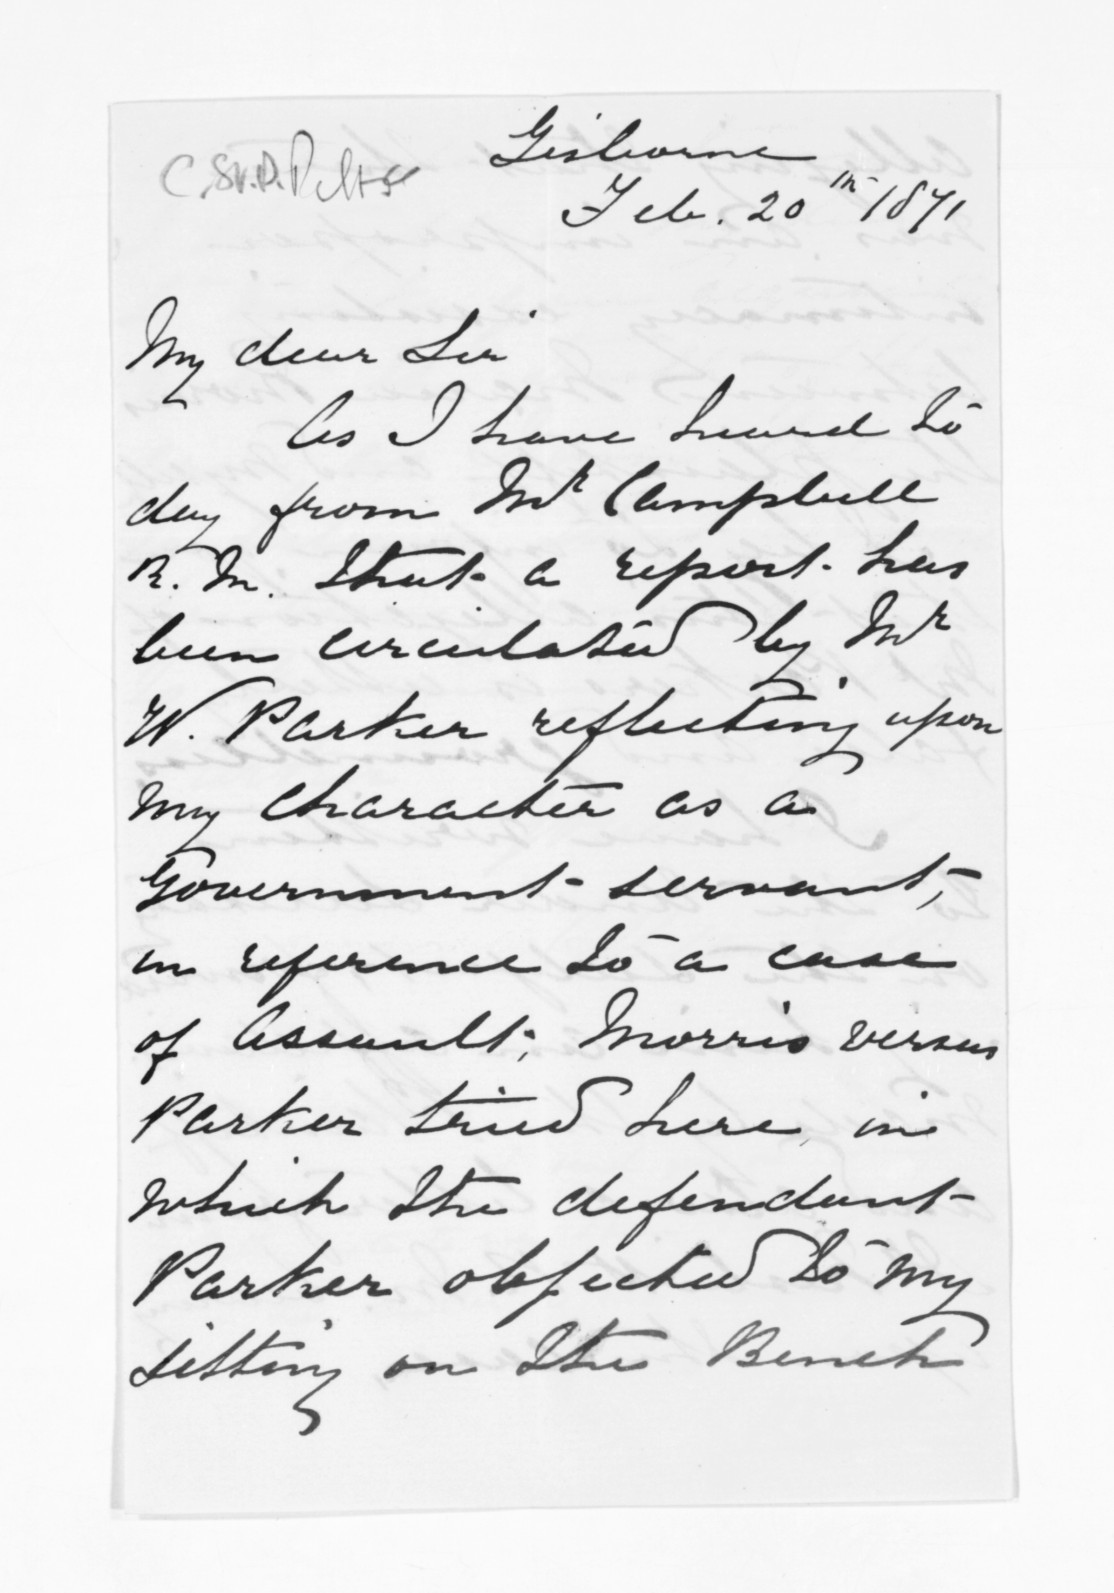 Gisborne
Feb. 20th 1871
My dear Sir
As I have heard to
day from Mr Campbell
R. M. that a report has
been circulated by Mr
W. Parker reflecting upon
my character as a
Government servant,
in reference to a case
of Assault; Morris versus
Parker tried here, in
which the defendant
Parker objected to my
sitting on the Bench